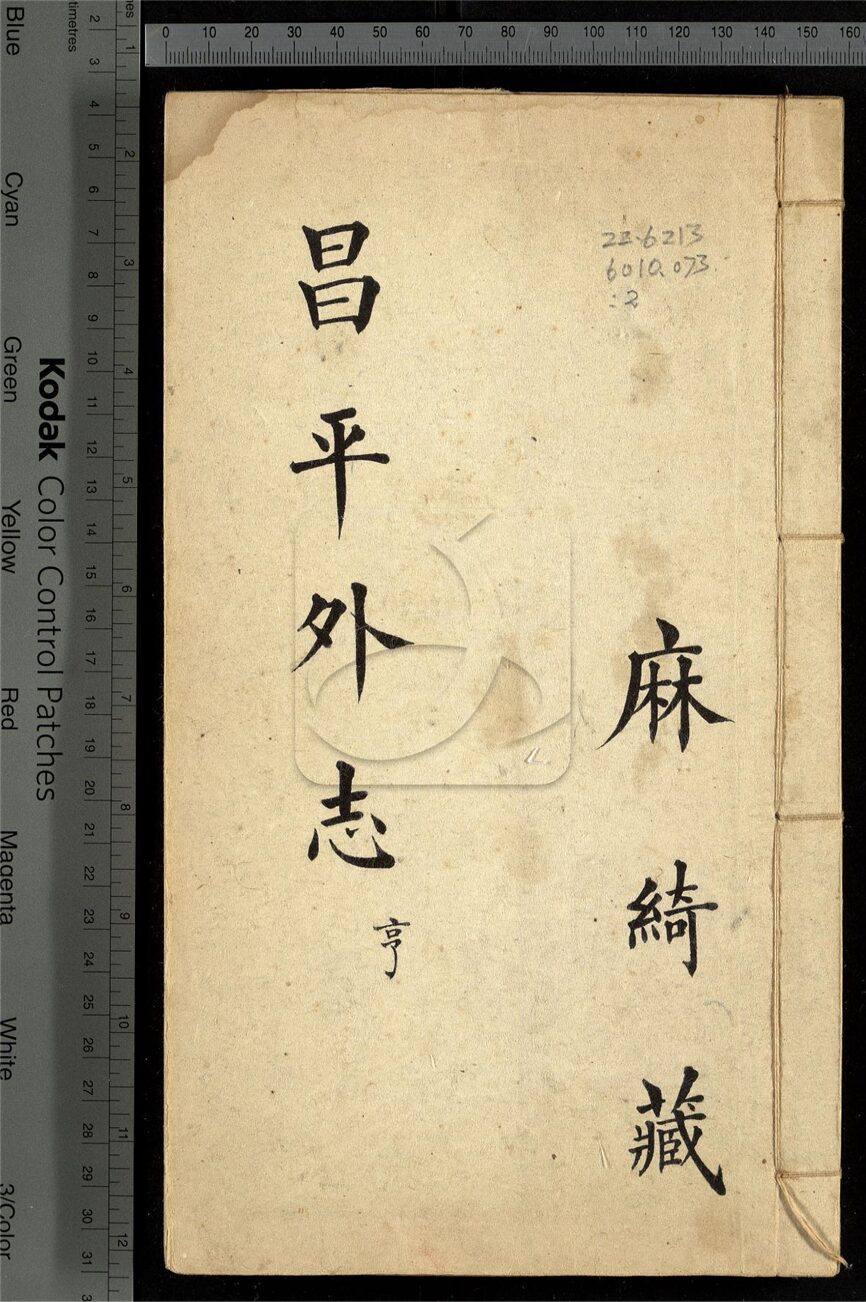 麻綺藏
昌平外志
亨
22.6213
6010.073
:2
0 10 20 30 40 50 60 70 80 90 100 110 120 130 140 150 160
Kodak Color Control Patches
Blue
Cyan
Green
Yellow
Red
Magenta
White
3/Color
2 3 4 5 6 7 8 9 10 11 12 13 14 15 16 17 18 19 20 21 22 23 24 25 26 27 28 29 30 31
1 2 3 4 5 6 7 8 9 10 11 12